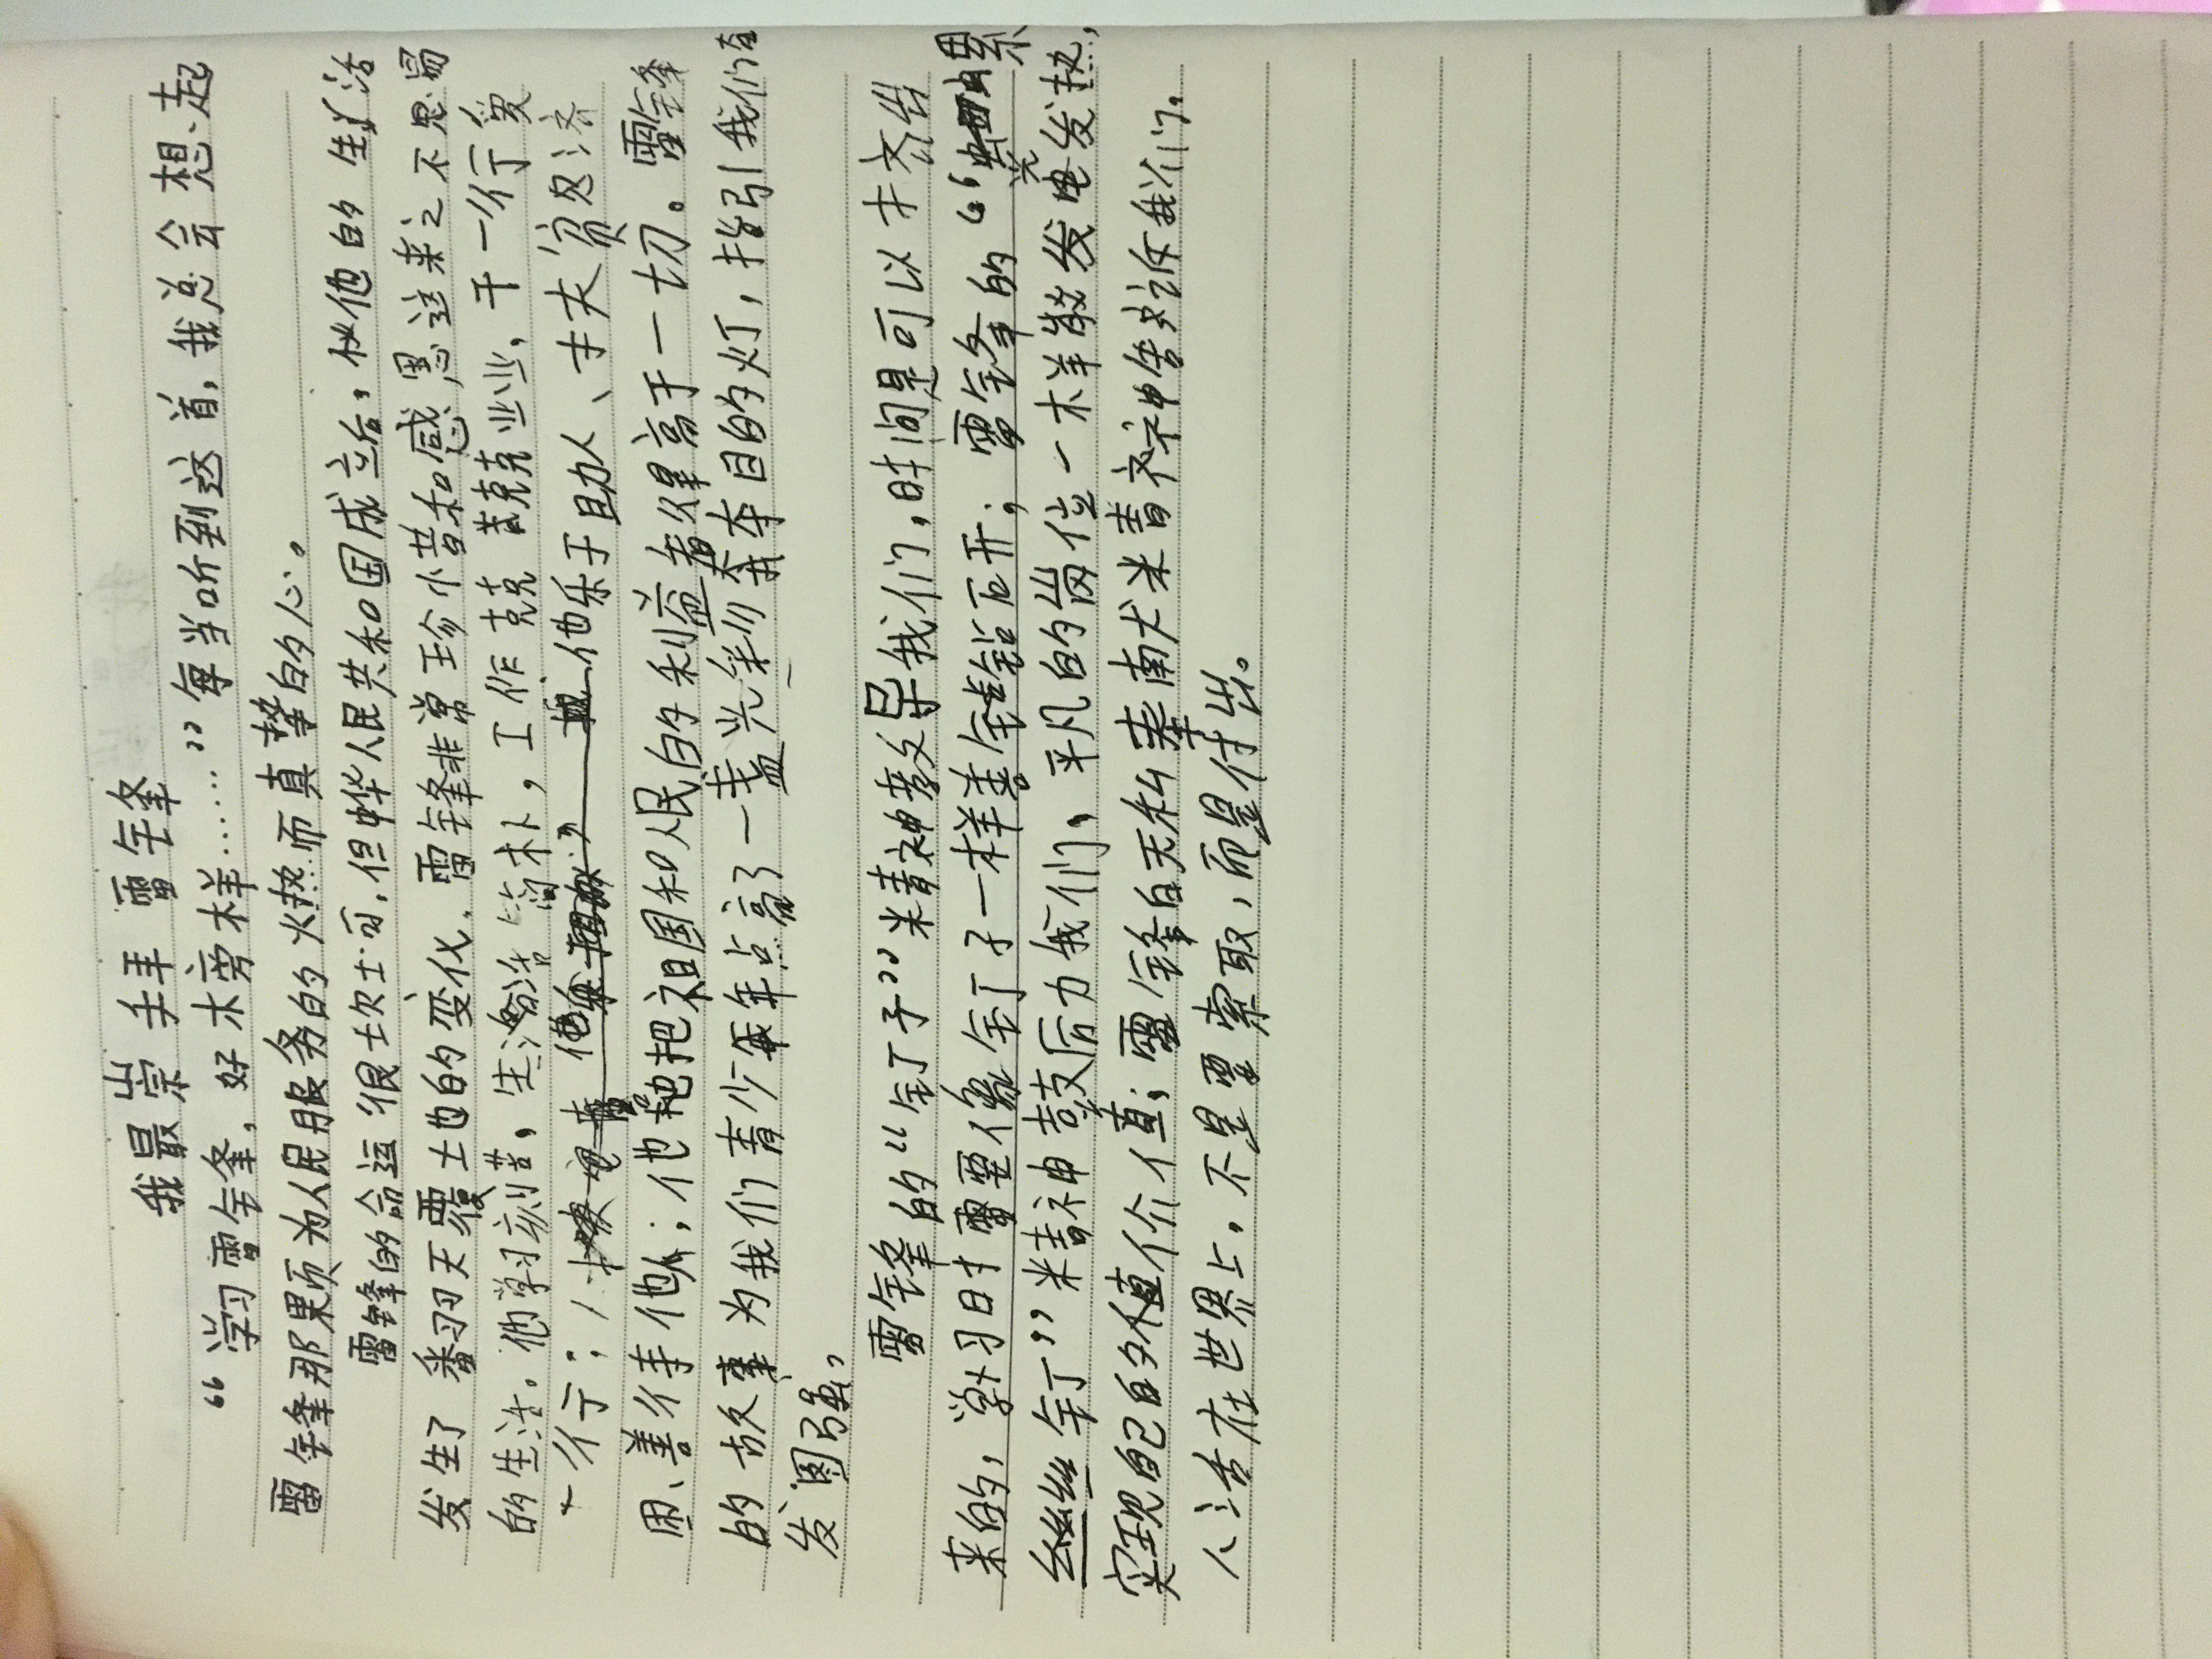 我最崇拜雷锋
“学习雷锋，好榜样……”每当听到这首，我总会想起
雷锋那颗为人民服务的火热而真挚的心。
雷锋的命运很坎坷，但中华人民共和国成立后，他的生活
发生了翻天覆地的变化，雷锋非常珍惜和感恩这来之不易
的生活。他学习刻苦，生活简朴，工作克克业业，干一行爱
一行；他乐于助人、扶贫济
困、善待他人；他把祖国和人民的利益看得高于一切。雷锋
的故事为我们青少年点亮了一盏光彩夺目的灯，指引我们奋
发图强。
雷锋的“钉子”精神教导我们，时间是可以挤出
来的，学习时需要像钉子一样善钻研；雷锋的“螺
丝钉”精神鼓励我们，平凡的岗位一样散发光发热，
实现自己的价值；雷锋的无私奉献精神告诉我们，
人活在世界上，不是要索取，而是付出。